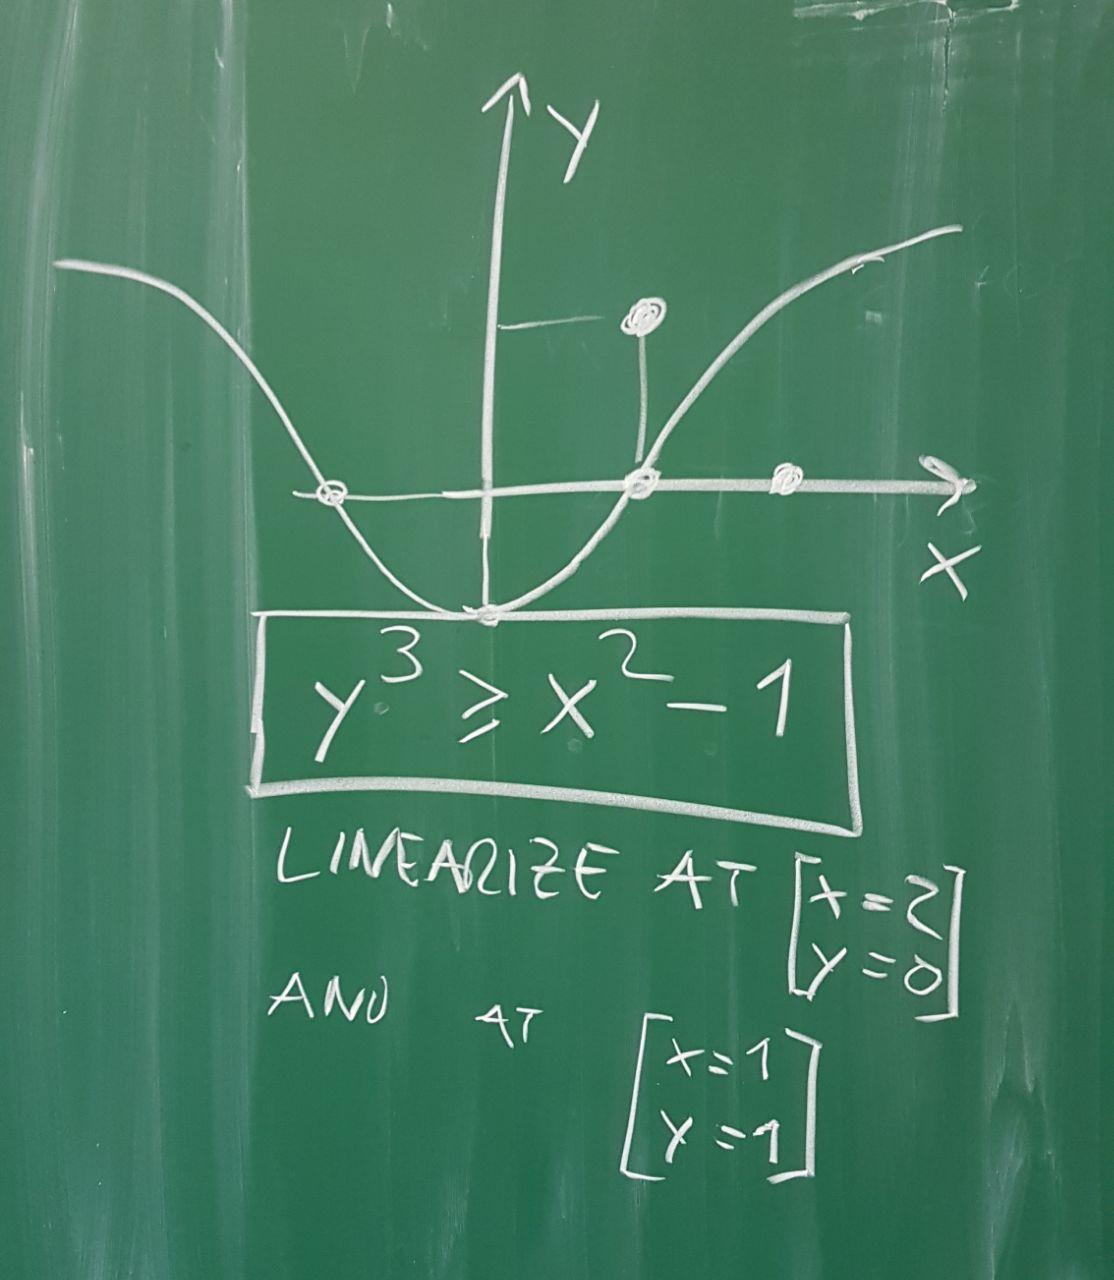 Y
X
y³ ≥ x² - 1
LINEARIZE AT [x=2
y=0]
AND AT [x=1
y=1]